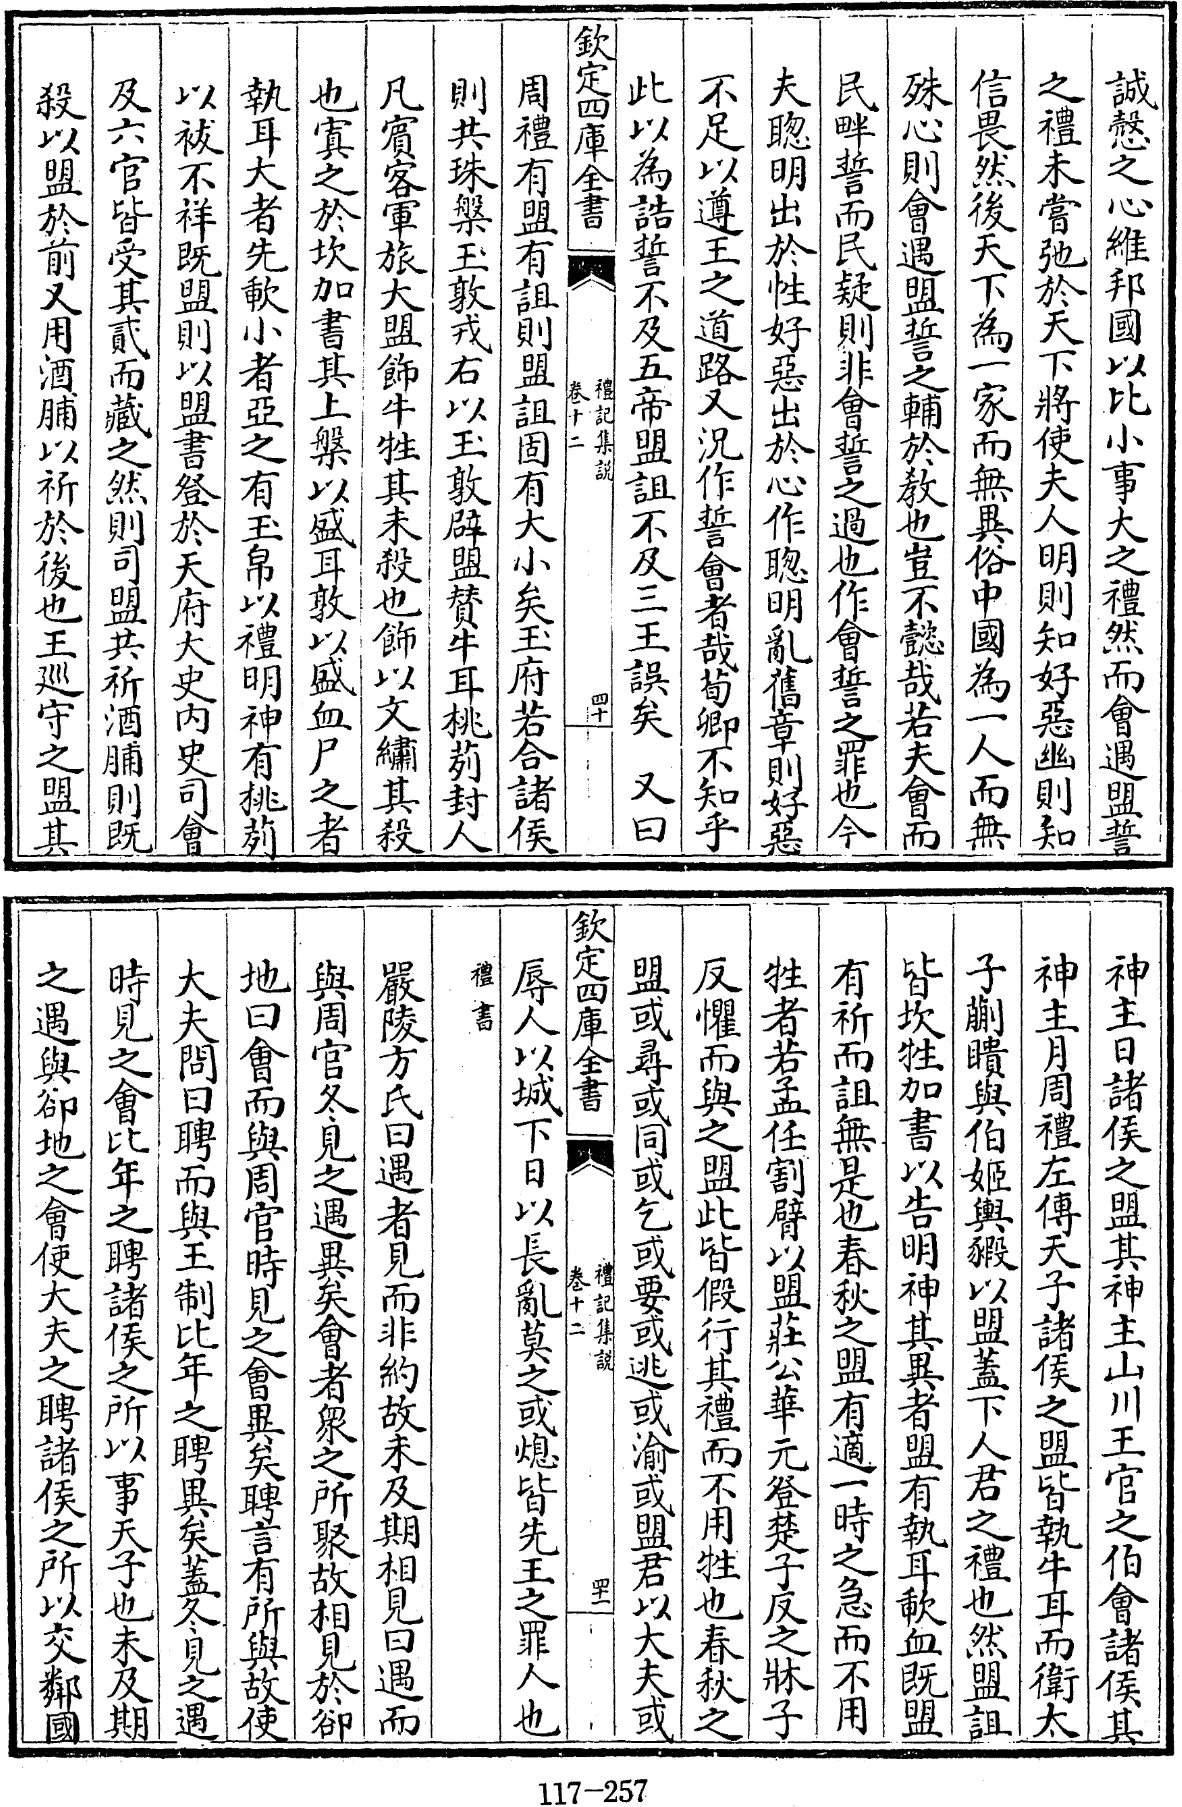 誠慤之心維邦國以比小事大之禮然而會遇盟誓
之禮未嘗弛於天下將使夫人明則知好惡幽則知
信畏然後天下為一家而無異俗中國為一人而無
殊心則會遇盟誓之輔於教也豈不懿哉若夫會而
民畔誓而民疑則非會誓之過也作會誓之罪也今
夫聰明出於性好惡出於心作聰明亂舊章則好惡
不足以遵王之道路又況作誓會者哉荀卿不知乎
此以為誥誓不及五帝盟詛不及三王誤矣　又曰
欽定四庫全書
禮記集說
卷十二
四十
周禮有盟有詛則盟詛固有大小矣玉府若合諸侯
則共珠槃玉敦戎右以玉敦辟盟贊牛耳桃茢封人
凡賓客軍旅大盟飾牛牲其未殺也飾以文繡其殺
也寘之於坎加書其上槃以盛耳敦以盛血尸之者
執耳大者先歃小者亞之有玉帛以禮明神有桃茢
以袚不祥既盟則以盟書登於天府大史內史司會
及六官皆受其貳而藏之然則司盟共祈酒脯則既
殺以盟於前又用酒脯以祈於後也王廵守之盟其
神主日諸侯之盟其神主山川王官之伯會諸侯其
神主月周禮左傳天子諸侯之盟皆執牛耳而衛太
子蒯聵與伯姬輿豭以盟蓋下人君之禮也然盟詛
皆坎牲加書以告明神其異者盟有執耳歃血既盟
有祈而詛無是也春秋之盟有適一時之急而不用
牲者若孟任割臂以盟莊公華元登楚子反之牀子
反懼而與之盟此皆假行其禮而不用牲也春秋之
盟或尋或同或乞或要或逃或渝或盟君以大夫或
欽定四庫全書
禮記集說
卷十二
四十一
辱人以城下日以長亂莫之或熄皆先王之罪人也
禮書
嚴陵方氏曰遇者見而非約故未及期相見曰遇而
與周官冬見之遇異矣會者衆之所聚故相見於郤
地曰會而與周官時見之會異矣聘言有所與故使
大夫問曰聘而與王制比年之聘異矣蓋冬見之遇
時見之會比年之聘諸侯之所以事天子也未及期
之遇與郤地之會使大夫之聘諸侯之所以交鄰國
117-257